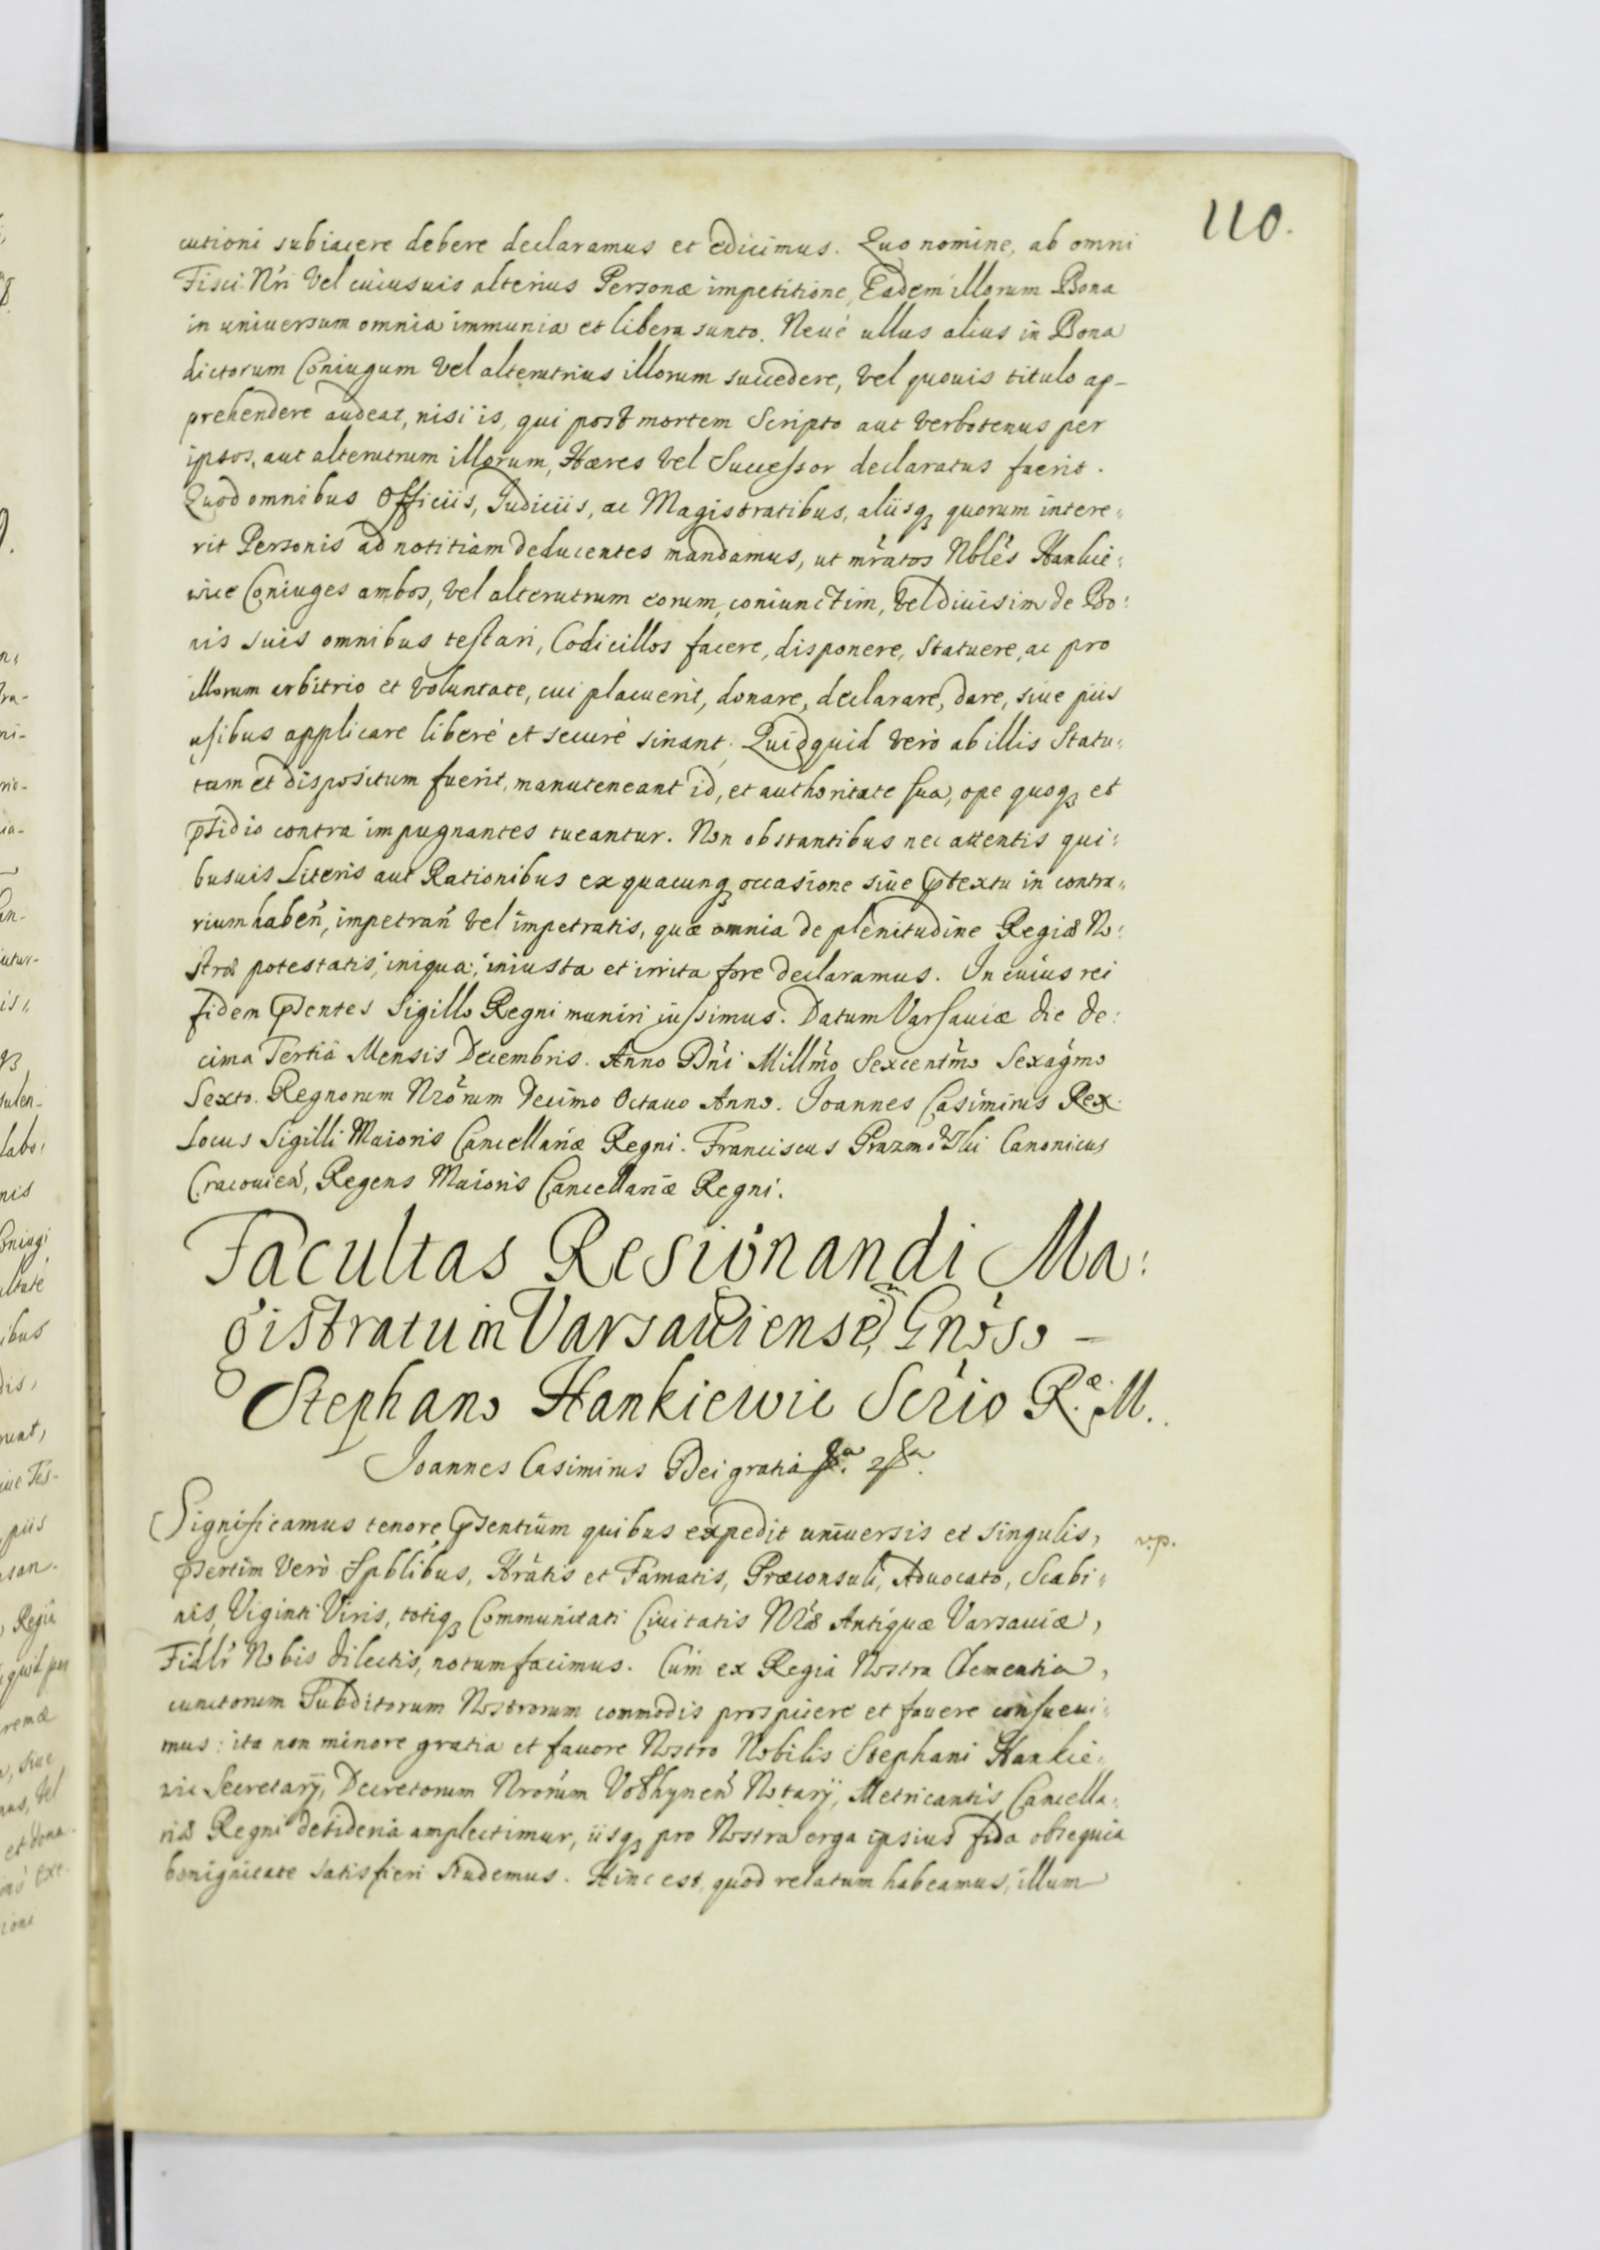 110.
cutioni subiacere debere declaramus et edicimus. Quo nomine, ab omni
Fisci Nri vel cuiusuis alterius Personæ impetitione, Eadem illorum Bona
in uniuersum omnia immunia et libera sunto. Neué ullus alius in Bona
dictorum Coniugum vel alterutrius illorum succedere, vel quouis titulo ap-
prehendere audeat, nisi is, qui post mortem Scripto aut verbotenus per
ipsos, aut alterutrum illorum, Hæres vel Successor declaratus fuerit.
Quod omnibus Officiis, Judiciis, ac Magistratibus, aliisq; quorum intere:
rit Personis ad notitiam deducentes mandamus, ut mratos Nbles Hankie:
wice Coniuges ambos, vel alterutrum eorum, coniunctim, vel diuisim de Bo:
nis suis omnibus testari, Codicillos facere, disponere, statuere, ac pro
illorum arbitrio et voluntate, cui placuerit, donare, declarare, dare, siue piis
usibus applicare liberé et securé sinant. Quidquid veró ab illis Statu:
tum et dispositum fuerit, manuteneant id, et authoritate sua, ope quoq; et
psidio contra impugnantes tueantur. Non obstantibus nec attentis qui:
busuis Literis aut Rationibus ex quacunq; occasione siue ptextu in contra:
rium haben, impetran vel impetratis, quæ omnia de plenitudine Regiæ No:
stræ potestatis, iniqua, iniusta et irrita fore declaramus. In cuius rei
fidem psentes Sigillo Regni muniri iussimus. Datum Varsauiæ die de:
cima Tertia Mensis Decembris. Anno Dni Millmo Sexcentmo Sexagmo
Sexto. Regnorum Nrorum decimo Octauo Anno. Joannes Casimirus Rex.
Locus Sigilli Maioris Cancellariæ Regni. Franciscus Prazmowski Canonicus
Cracouien, Regens Maioris Cancellariæ Regni.
Facultas Resignandi Ma:
gistratum Varsauiensem, Gnoso -
Stephano Hankiewic Scrio R.æ M.
Joannes Casimirus Dei gratia &a. &a.
Significamus tenore psentium quibus expedit uniuersis et singulis, v.p.
psertim veró Spblibus, Hratis et Famatis, Præconsuli, Aduocato, Scabi:
nis, Viginti Viris, totiq; Communitati Ciuitatis Nræ Antiquæ Varsauiæ,
Fidlr Nobis dilectis, notum facimus. Cum ex Regia Nostra Clementia,
cunctorum Subditorum Nostrorum commodis prospicere et fauere consueui:
mus: ita non minore gratia et fauore Nostro Nobilis Stephani Hankie:
wic Secretarij, Decretorum Nrorum Volhynen Notarij, Metricantis Cancella:
riæ Regni desideria amplectimur, iisq; pro Nostra erga ipsius fida obsequia
benignitate satisfieri studemus. Hinc est, quod relatum habeamus, illum